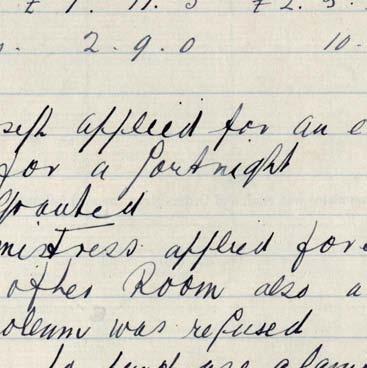 £ 1. 11. 3 £ 2. 3.
2. 9. 0 10.
applied for an e
for a fortnight
Granted
mistress applied for
other Room also a
oleum was refused